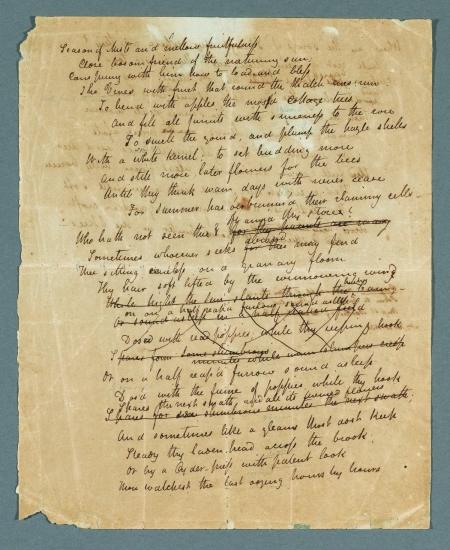 Season of Mists and mellow fruitfulness
Close bosom friend of the maturing sun;
Conspiring with him how to load and bless
The Vines with fruit that round the thatch eves run
To bend with apples the moss'd Cottage trees
And fill all furuits with sweeness to the core
To swell the gourd, and plump the hazle shells
With a white kernel; to set budding more
And still more later flowers for the bees
Until they think warm days with never cease
For Summer has o'erbrimm'd their clammy cells
Who hath not seen thee? for thy haunts are many
oft amid thy stores?
abroad
Sometimes whoever seeks for thee may find
Thee sitting careless on a granary floor
Thy hair soft lifted by the winnowing wind
While bright the Sun slants through the barn
on on a half reap'd furrow sound asleep
Or sound asleep in a half reaped field
Dosed with read poppies; while thy reeping hook
Spares form some slumbrous
minutes while warm slumpers creep
Or on a half reap'd furrow sound asleep
Dos'd with the fume of poppies while thy hook
Spares the next swath, and all its twined flowers
Spares for some slumbrous minutes the next swath
And sometimes like a gleans thost dost keep
Steady thy laden head across the brook;
Or by a Cyder-press with patent look
Thou watchest the last oozing hours by hours